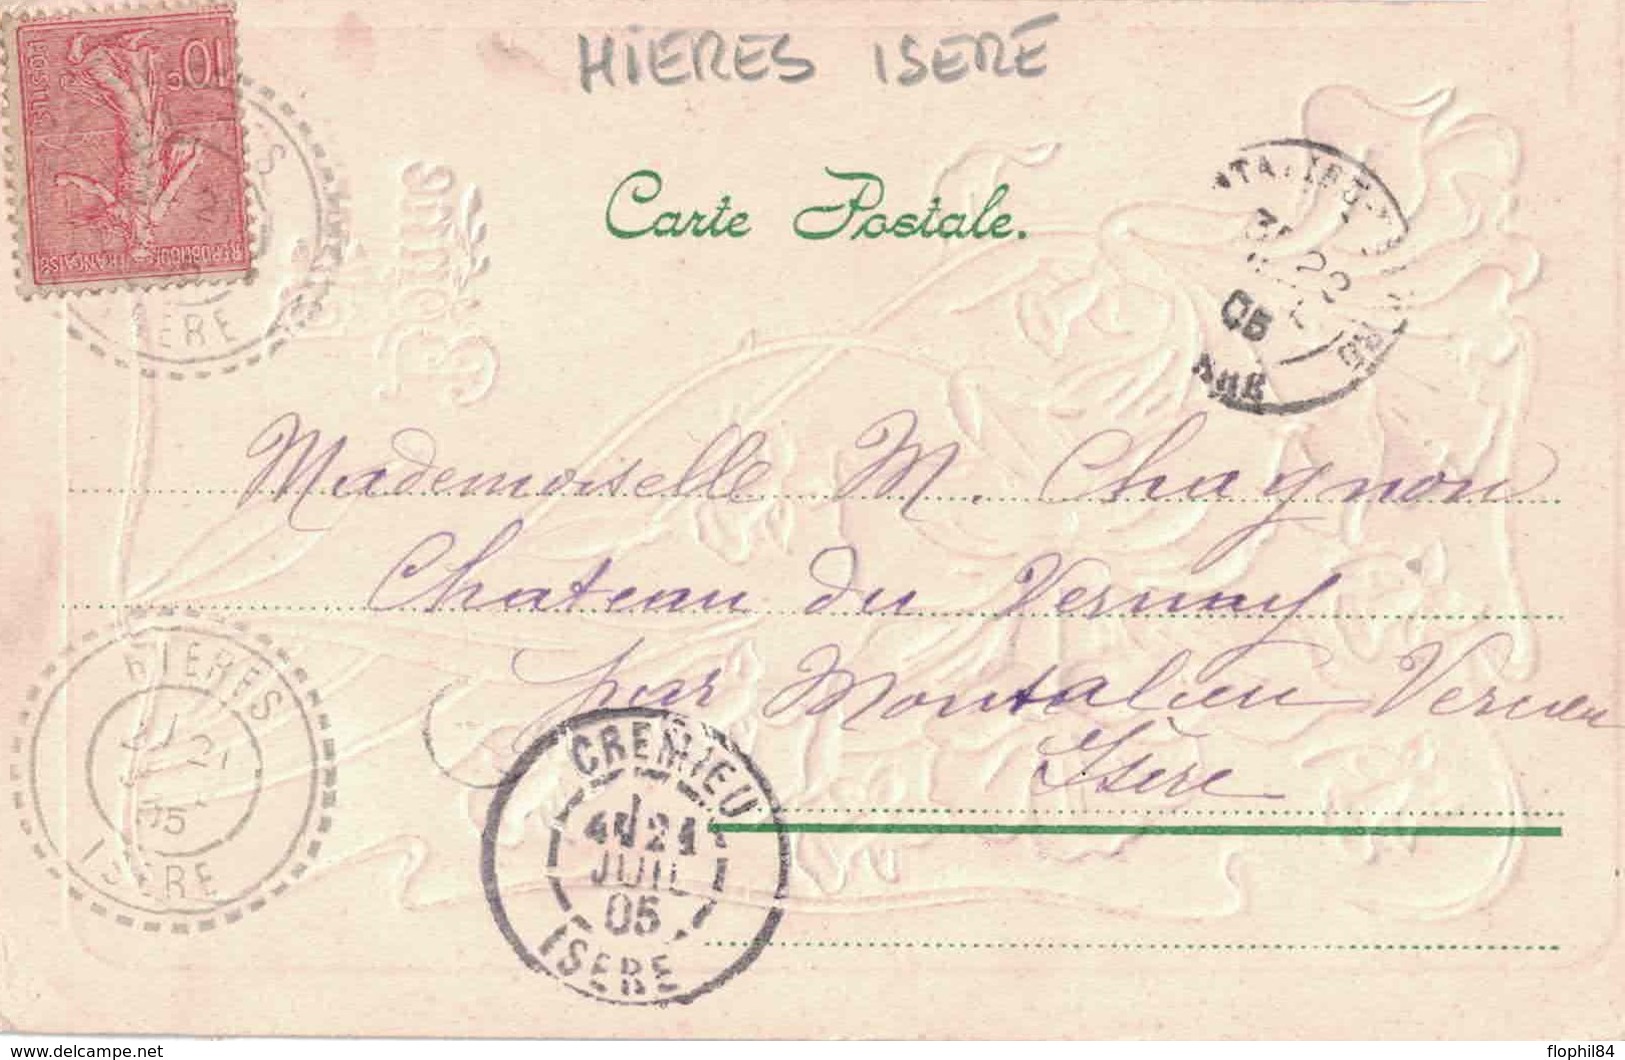 HIERES ISERE
10c
POSTES
REPUBLIQUE FRANÇAISE
ISERE
Carte Postale.
22
05
Mademoiselle M. Chagnon
Chateau du Vernay
par Montalieu Vercieu
Isère
HIERES
21
05
ISERE
CREMIEU
21
JUIL
05
ISERE
www.delcampe.net
flophil84